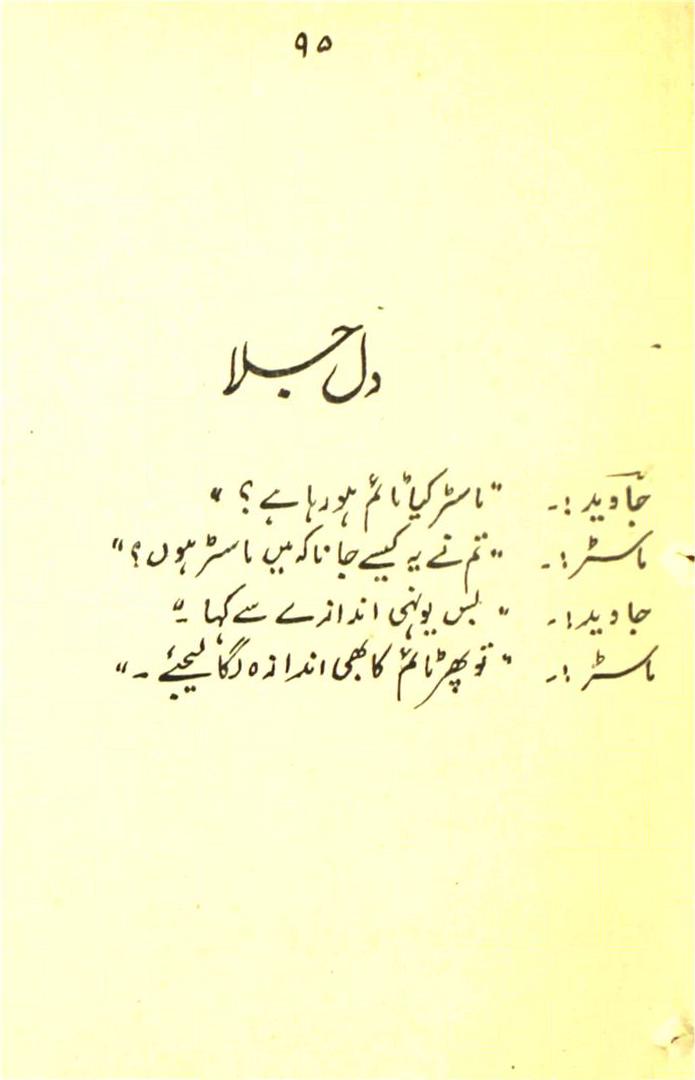 ۹۵
دل جلا
جاوید :۔ "ماسٹر کیا ٹائم ہو رہا ہے ؟"
ماسٹر :۔ "تم نے یہ کیسے جانا کہ میں ماسٹر ہوں ؟"
جاوید :۔ "بس یونہی اندازے سے کہا ۔"
ماسٹر :۔ "تو پھر ٹائم کا بھی اندازہ لگا لیجئے ۔"